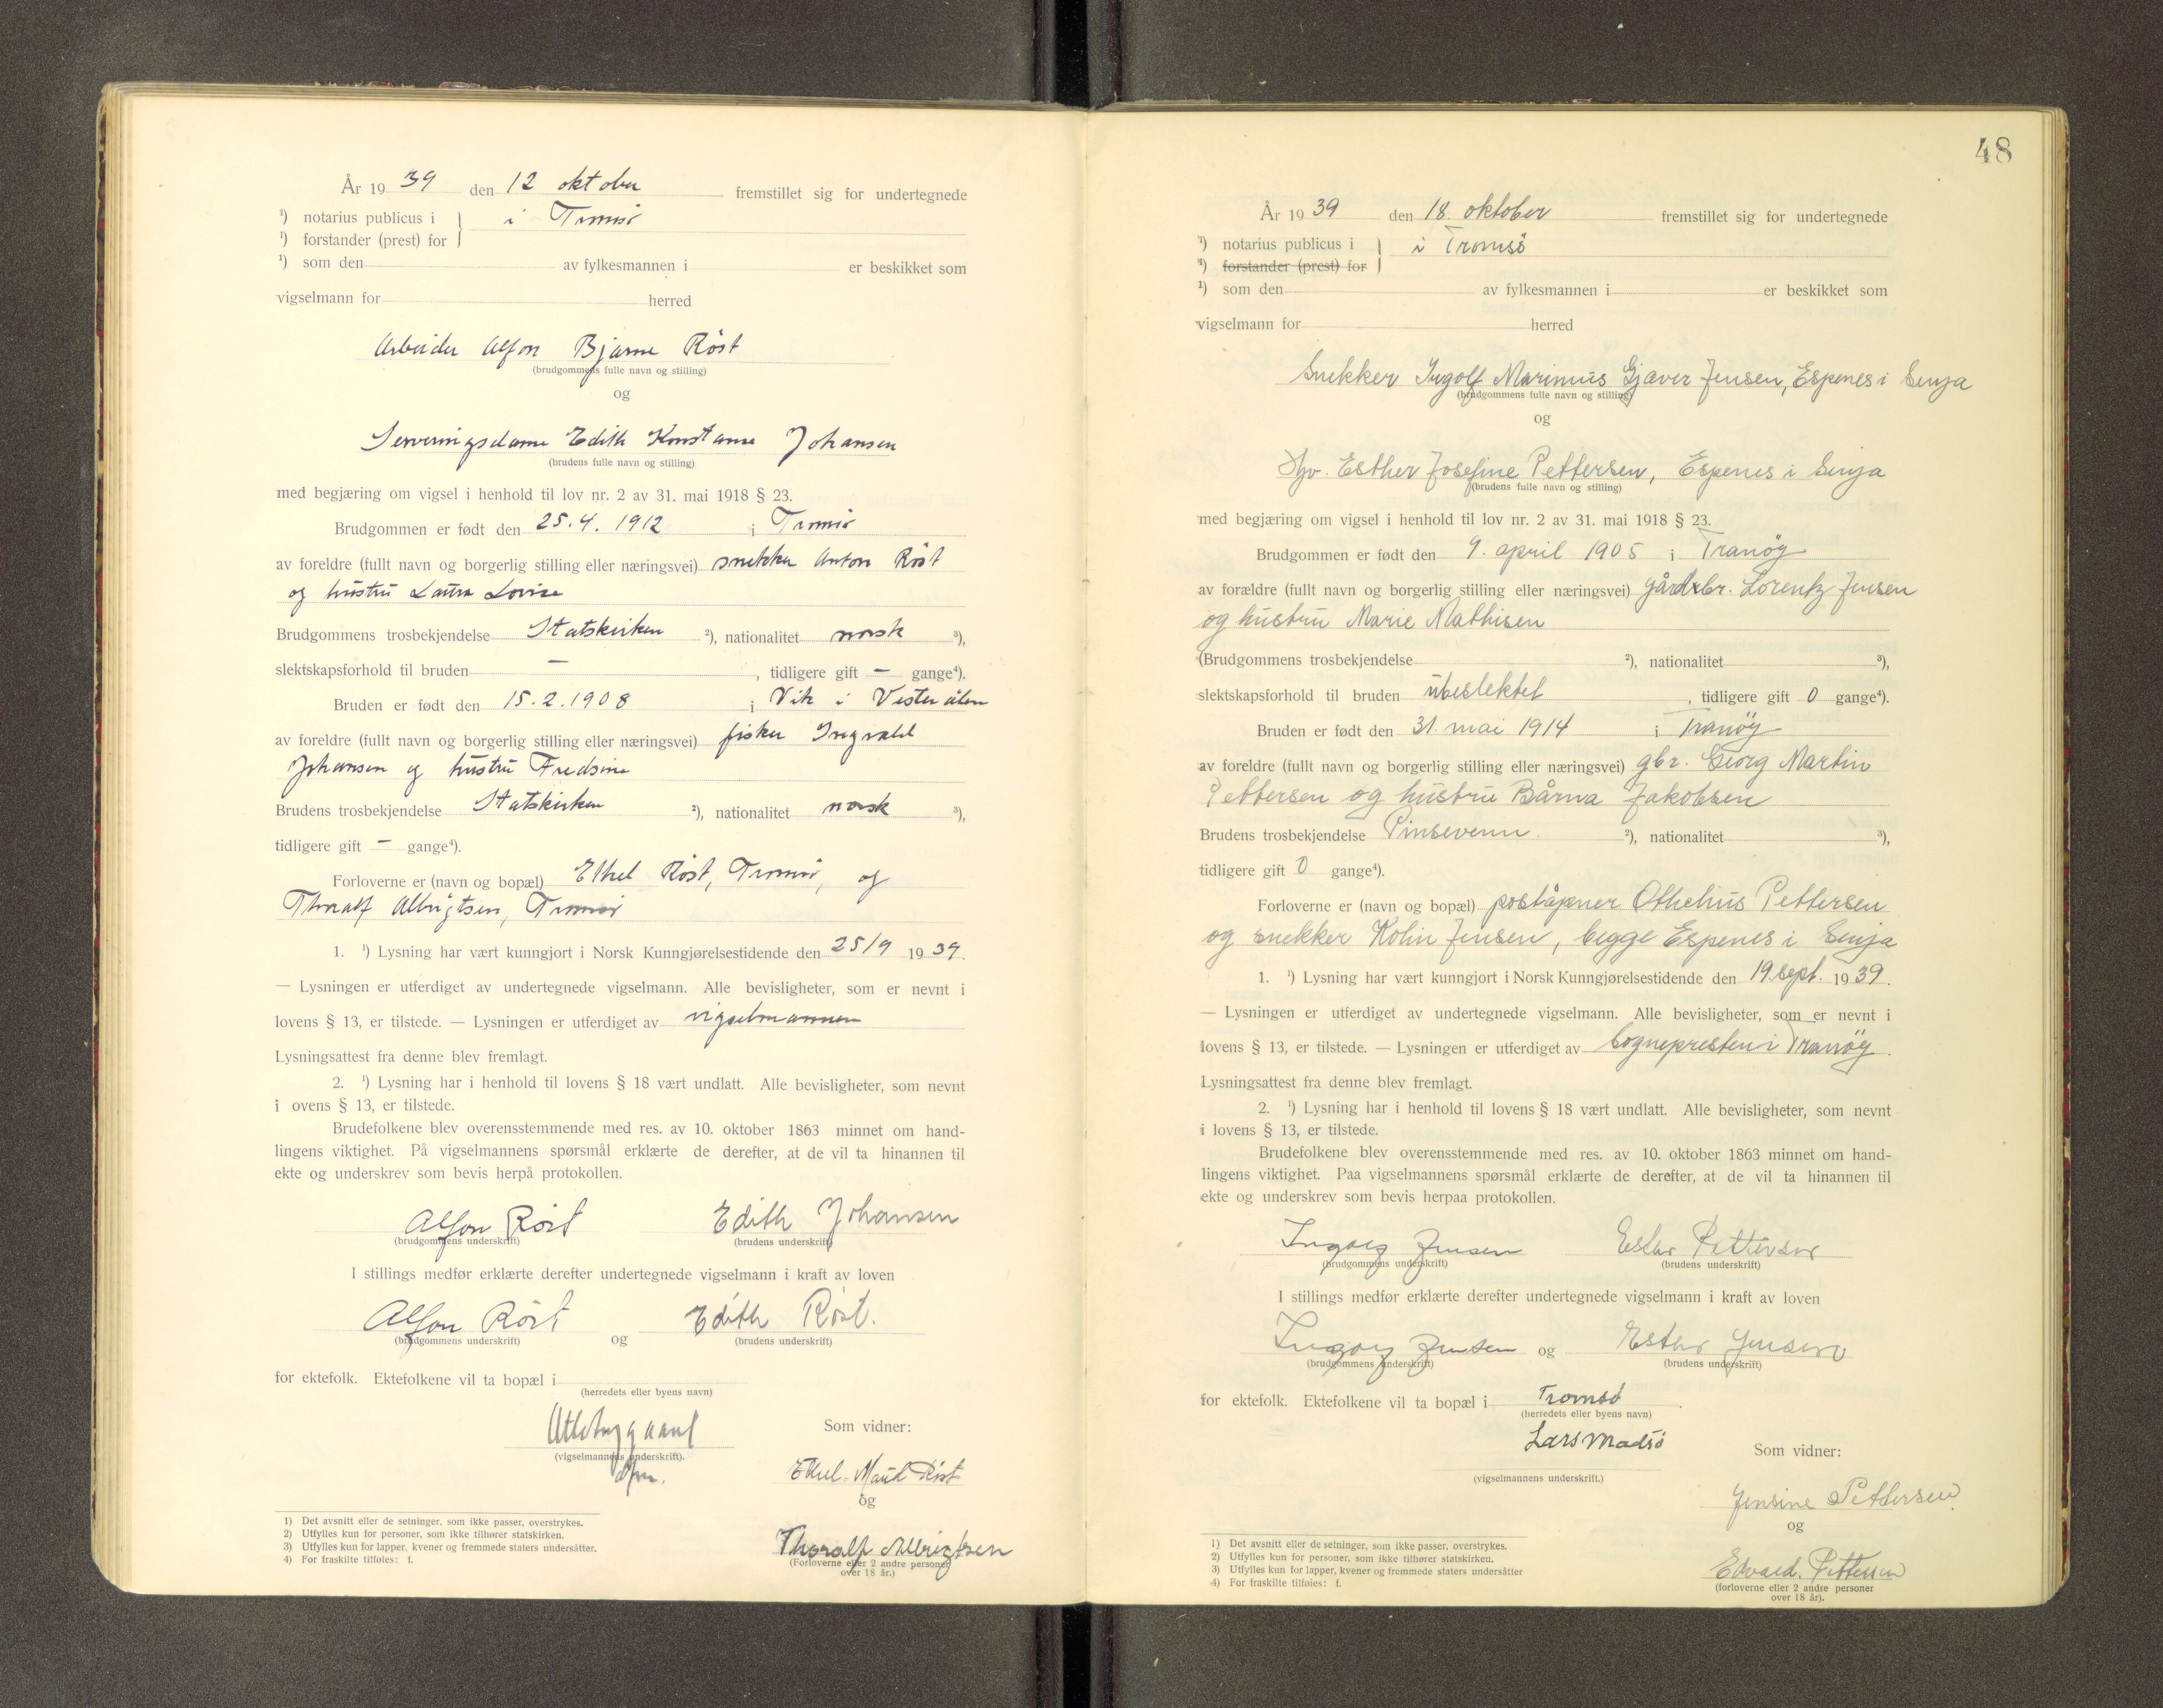 År 19 39 den 12 oktober fremstillet sig for undertegnede
¹) notarius publicus i } i Tromsø
¹) forstander (prest) for
¹) som den av fylkesmannen i er beskikket som
vigselmann for herred
Arbeider Alfon Bjarne Röst
(brudgommens fulle navn og stilling)
og
Serveringsdame Edith Konstanse Johansen
(brudens fulle navn og stilling)
med begjæring om vigsel i henhold til lov nr. 2 av 31. mai 1918 § 23.
Brudgommen er født den 25.4.1912 i Tromsø
av foreldre (fullt navn og borgerlig stilling eller næringsvei) snekker Anton Röst
og hustru Laura Lovise
Brudgommens trosbekjendelse Statskirken ²), nationalitet norsk ³),
slektskapsforhold til bruden — , tidligere gift — gange⁴).
Bruden er født den 15.2.1908 i Vik i Vesterålen
av foreldre (fullt navn og borgerlig stilling eller næringsvei) fisker Ingvald
Johansen og hustru Fredsine
Brudens trosbekjendelse Statskirken ²), nationalitet norsk ³),
tidligere gift — gange⁴).
Forloverne er (navn og bopæl) Ethel Röst, Tromsø, og
Thoralf Albrigtsen, Tromsø
1. ¹) Lysning har vært kunngjort i Norsk Kunngjørelsestidende den 25/9 1939.
— Lysningen er utferdiget av undertegnede vigselmann. Alle bevisligheter, som er nevnt i
lovens § 13, er tilstede. — Lysningen er utferdiget av vigselmannen
Lysningsattest fra denne blev fremlagt.
2. ¹) Lysning har i henhold til lovens § 18 vært undlatt. Alle bevisligheter, som nevnt
i ovens § 13, er tilstede.
Brudefolkene blev overensstemmende med res. av 10. oktober 1863 minnet om hand-
lingens viktighet. På vigselmannens spørsmål erklærte de derefter, at de vil ta hinannen til
ekte og underskrev som bevis herpå protokollen.
Alfon Röst Edith Johansen
(brudgommens underskrift) (brudens underskrift)
I stillings medfør erklærte derefter undertegnede vigselmann i kraft av loven
Alfon Röst og Edith Röst.
(brudgommens underskrift) (brudens underskrift)
for ektefolk. Ektefolkene vil ta bopæl i
(herredets eller byens navn)
Som vidner:
(vigselmannens underskrift).
Ethel-Maud Röst
og
Thoralf Albrigtsen
(Forloverne eller 2 andre personer
over 18 år.)
1) Det avsnitt eller de setninger, som ikke passer, overstrykes.
2) Utfylles kun for personer, som ikke tilhører statskirken.
3) Utfylles kun for lapper, kvener og fremmede staters undersåtter.
4) For fraskilte tilføies: f.
48
År 19 39 den 18. oktober fremstillet sig for undertegnede
¹) notarius publicus i } i Tromsö
¹) forstander (prest) for
¹) som den av fylkesmannen i er beskikket som
vigselmann for herred
Snekker Ingolf Marinius Gjæver Jensen, Espenes i Senja
(brudgommens fulle navn og stilling)
og
Hjv. Esther Josefine Pettersen, Espenes i Senja
(brudens fulle navn og stilling)
med begjæring om vigsel i henhold til lov nr. 2 av 31. mai 1918 § 23.
Brudgommen er født den 9. april 1905 i Tranöy
av forældre (fullt navn og borgerlig stilling eller næringsvei) gårdbr. Lorentz Jensen
og hustru Marie Mathisen
(Brudgommens trosbekjendelse ²), nationalitet ³),
slektskapsforhold til bruden ubeslektet , tidligere gift 0 gange⁴).
Bruden er født den 31. mai 1914 i Tranöy
av foreldre (fullt navn og borgerlig stilling eller næringsvei) gbr. Georg Martin
Pettersen og hustru Bårna Jakobsen
Brudens trosbekjendelse Pinsevenn. ²), nationalitet ³),
tidligere gift 0 gange⁴).
Forloverne er (navn og bopæl) poståpner Othelius Pettersen
og snekker Kolin Jensen, begge Espenes i Senja
1. ¹) Lysning har vært kunngjort i Norsk Kunngjørelsestidende den 19. sept. 1939.
— Lysningen er utferdiget av undertegnede vigselmann. Alle bevisligheter, som er nevnt i
lovens § 13, er tilstede. — Lysningen er utferdiget av Sognepresten i Tranöy.
Lysningsattest fra denne blev fremlagt.
2. ¹) Lysning har i henhold til lovens § 18 vært undlatt. Alle bevisligheter, som nevnt
i lovens § 13, er tilstede.
Brudefolkene blev overensstemmende med res. av 10. oktober 1863 minnet om hand-
lingens viktighet. Paa vigselmannens spørsmål erklærte de derefter, at de vil ta hinannen til
ekte og underskrev som bevis herpaa protokollen.
Ingolf Jensen Ester Pettersen
(brudgommens underskrift) (brudens underskrift)
I stillings medfør erklærte derefter undertegnede vigselmann i kraft av loven
Ingolf Jensen og Ester Jensen
(brudgommens underskrift) (brudens underskrift)
for ektefolk. Ektefolkene vil ta bopæl i Tromsö.
(herredets eller byens navn)
Lars Madsö
Som vidner:
(vigselmannens underskrift.)
Jensine Pettersen
og
Edvard. Pettersen
(forloverne eller 2 andre personer
over 18 år).
1) Det avsnitt eller de setninger, som ikke passer, overstrykes.
2) Utfylles kun for personer, som ikke tilhører statskirken.
3) Utfylles kun for lapper, kvener og fremmede staters undersåtter
4) For fraskilte tilføies: f.